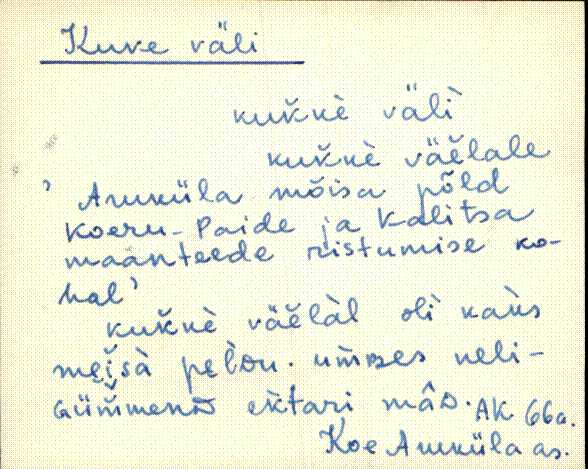 Kuke väli
kuk̆kè väl̀ì
kuk̆kè väĕlale
' Amküla mõisa põld
Koeru-Paide ja Kalitsa
maanteede ristumise ko-
hal'
kuk̆kè väĕlàl olì kaùs
pel̀ou. um̀mes neli-
ektari mâo. AK 66a.
Koe Amküla as.